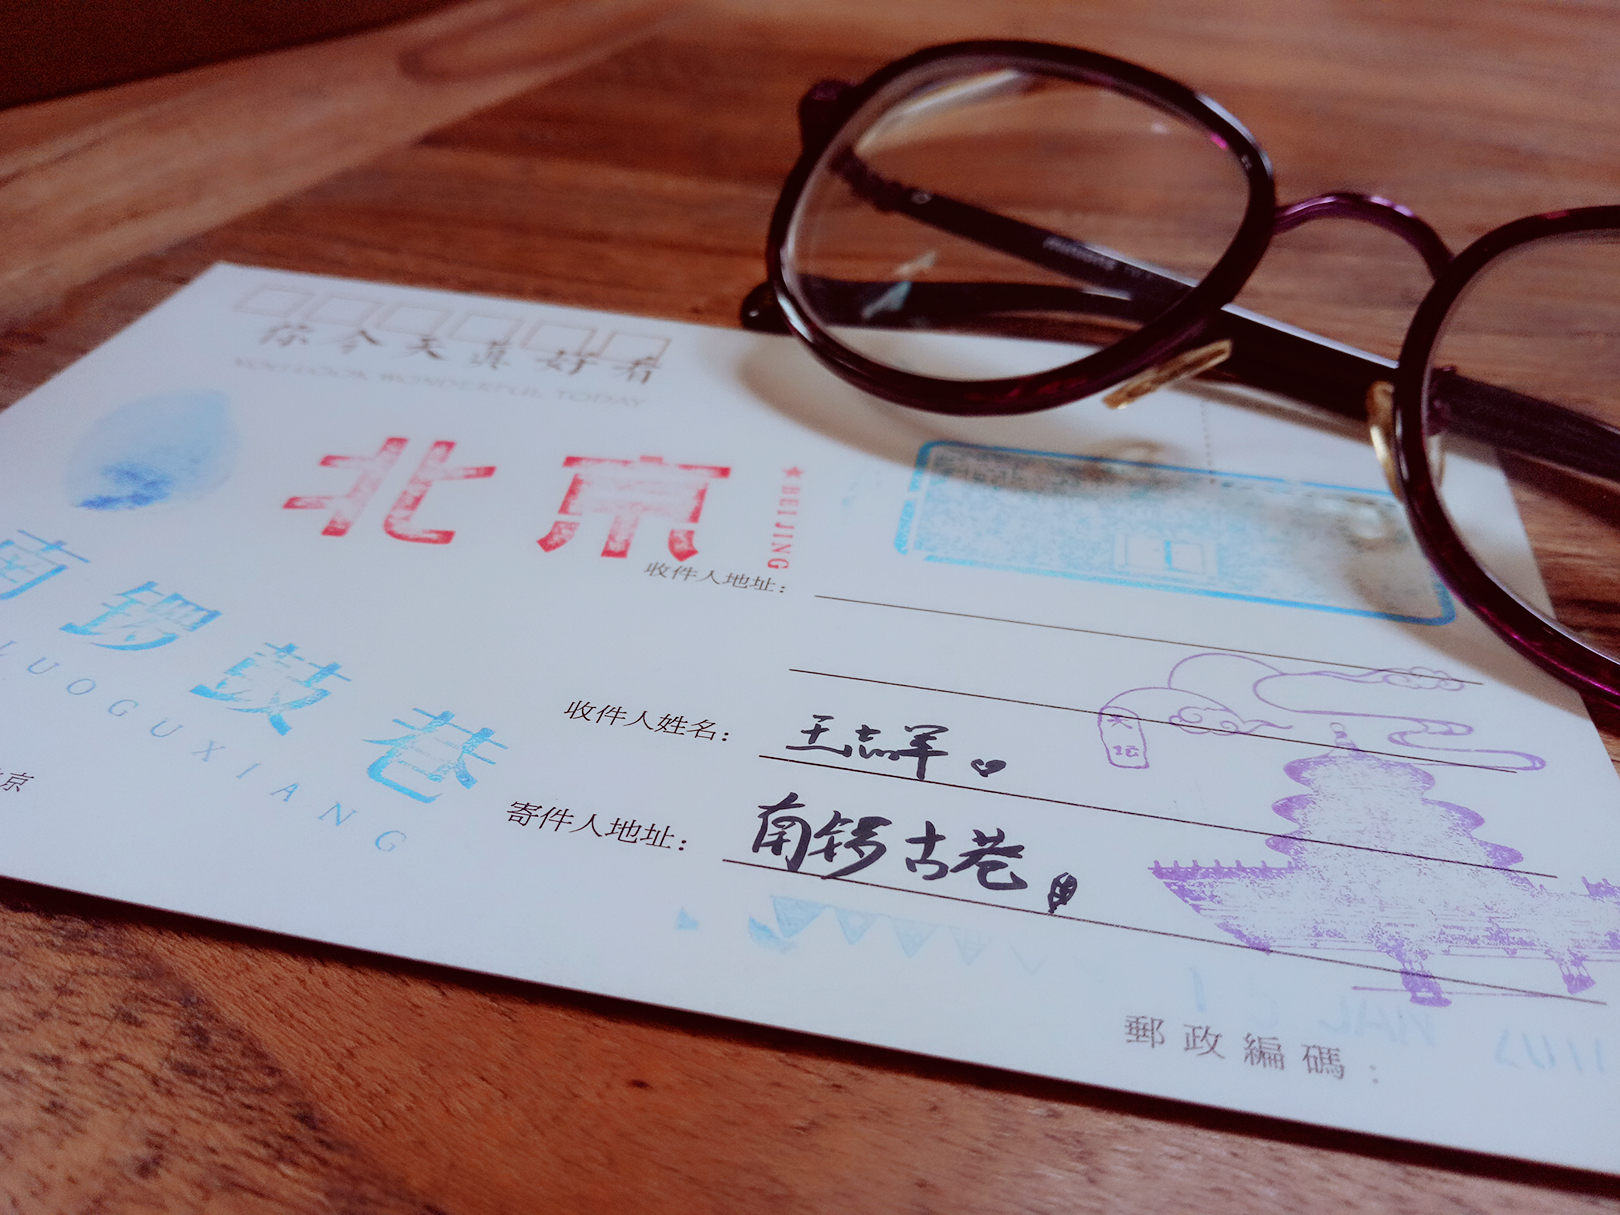 你今天真好看
YOU LOOK WONDERFUL TODAY
北京
★BEIJING
南锣鼓巷
LUOGUXIANG
京
收件人地址：
收件人姓名：王志军
天坛
寄件人地址：南锣古巷
郵政編碼：